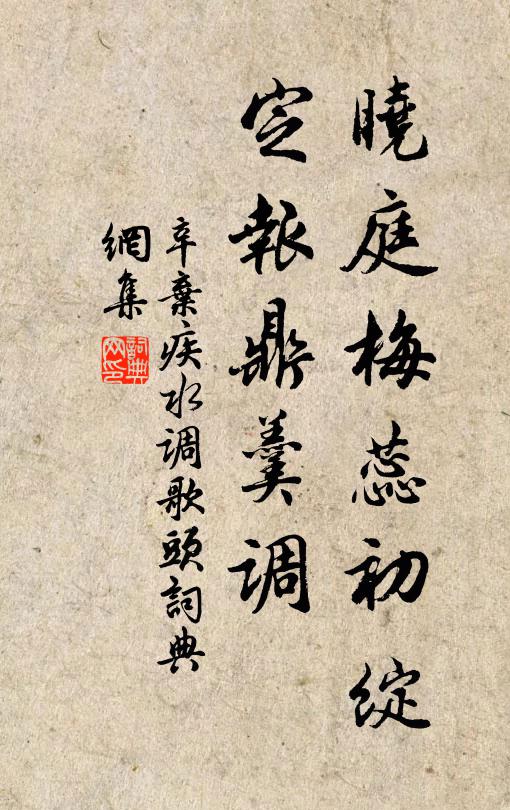 曉庭梅蕊初綻
定報鼎羹調
辛棄疾水调歌頭詞典
網集
詞典
网印